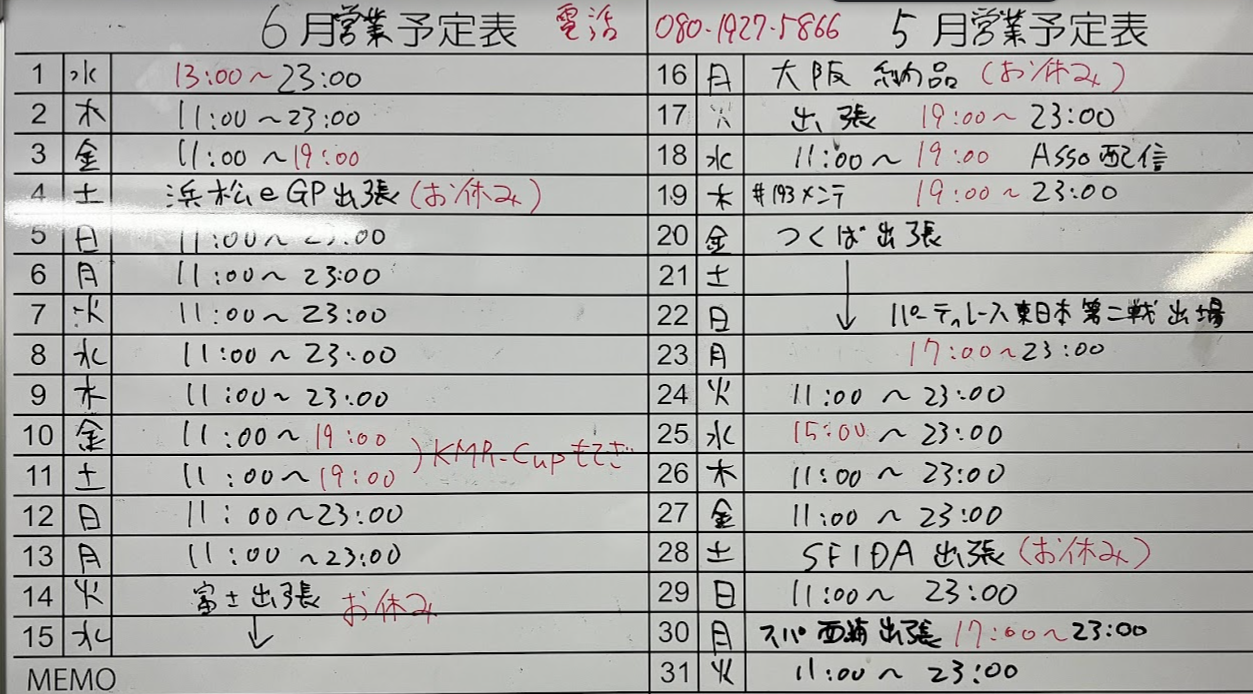 6月営業予定表 電話
1 水 13:00～23:00
2 木 11:00～23:00
3 金 11:00～19:00
4 土 浜松eGP出張(お休み)
5 日 11:00～23:00
6 月 11:00～23:00
7 火 11:00～23:00
8 水 11:00～23:00
9 木 11:00～23:00
10 金 11:00～19:00
11 土 11:00～19:00
)KMR-Cupもてぎ
12 日 11:00～23:00
13 月 11:00～23:00
14 火 富士出張 お休み
15 水 ↓
MEMO
080-1927-5866 5月営業予定表
16 月 大阪 納品 (お休み)
17 火 出張 19:00～23:00
18 水 11:00～19:00 Asso配信
19 木 #193メンテ 19:00～23:00
20 金 つくば出張
21 土
22 日 ↓ パーティレース東日本第二戦出場
23 月 17:00～23:00
24 火 11:00～23:00
25 水 15:00～23:00
26 木 11:00～23:00
27 金 11:00～23:00
28 土 SFIDA出張(お休み)
29 日 11:00～23:00
30 月 スパ西浦出張 17:00～23:00
31 火 11:00～23:00